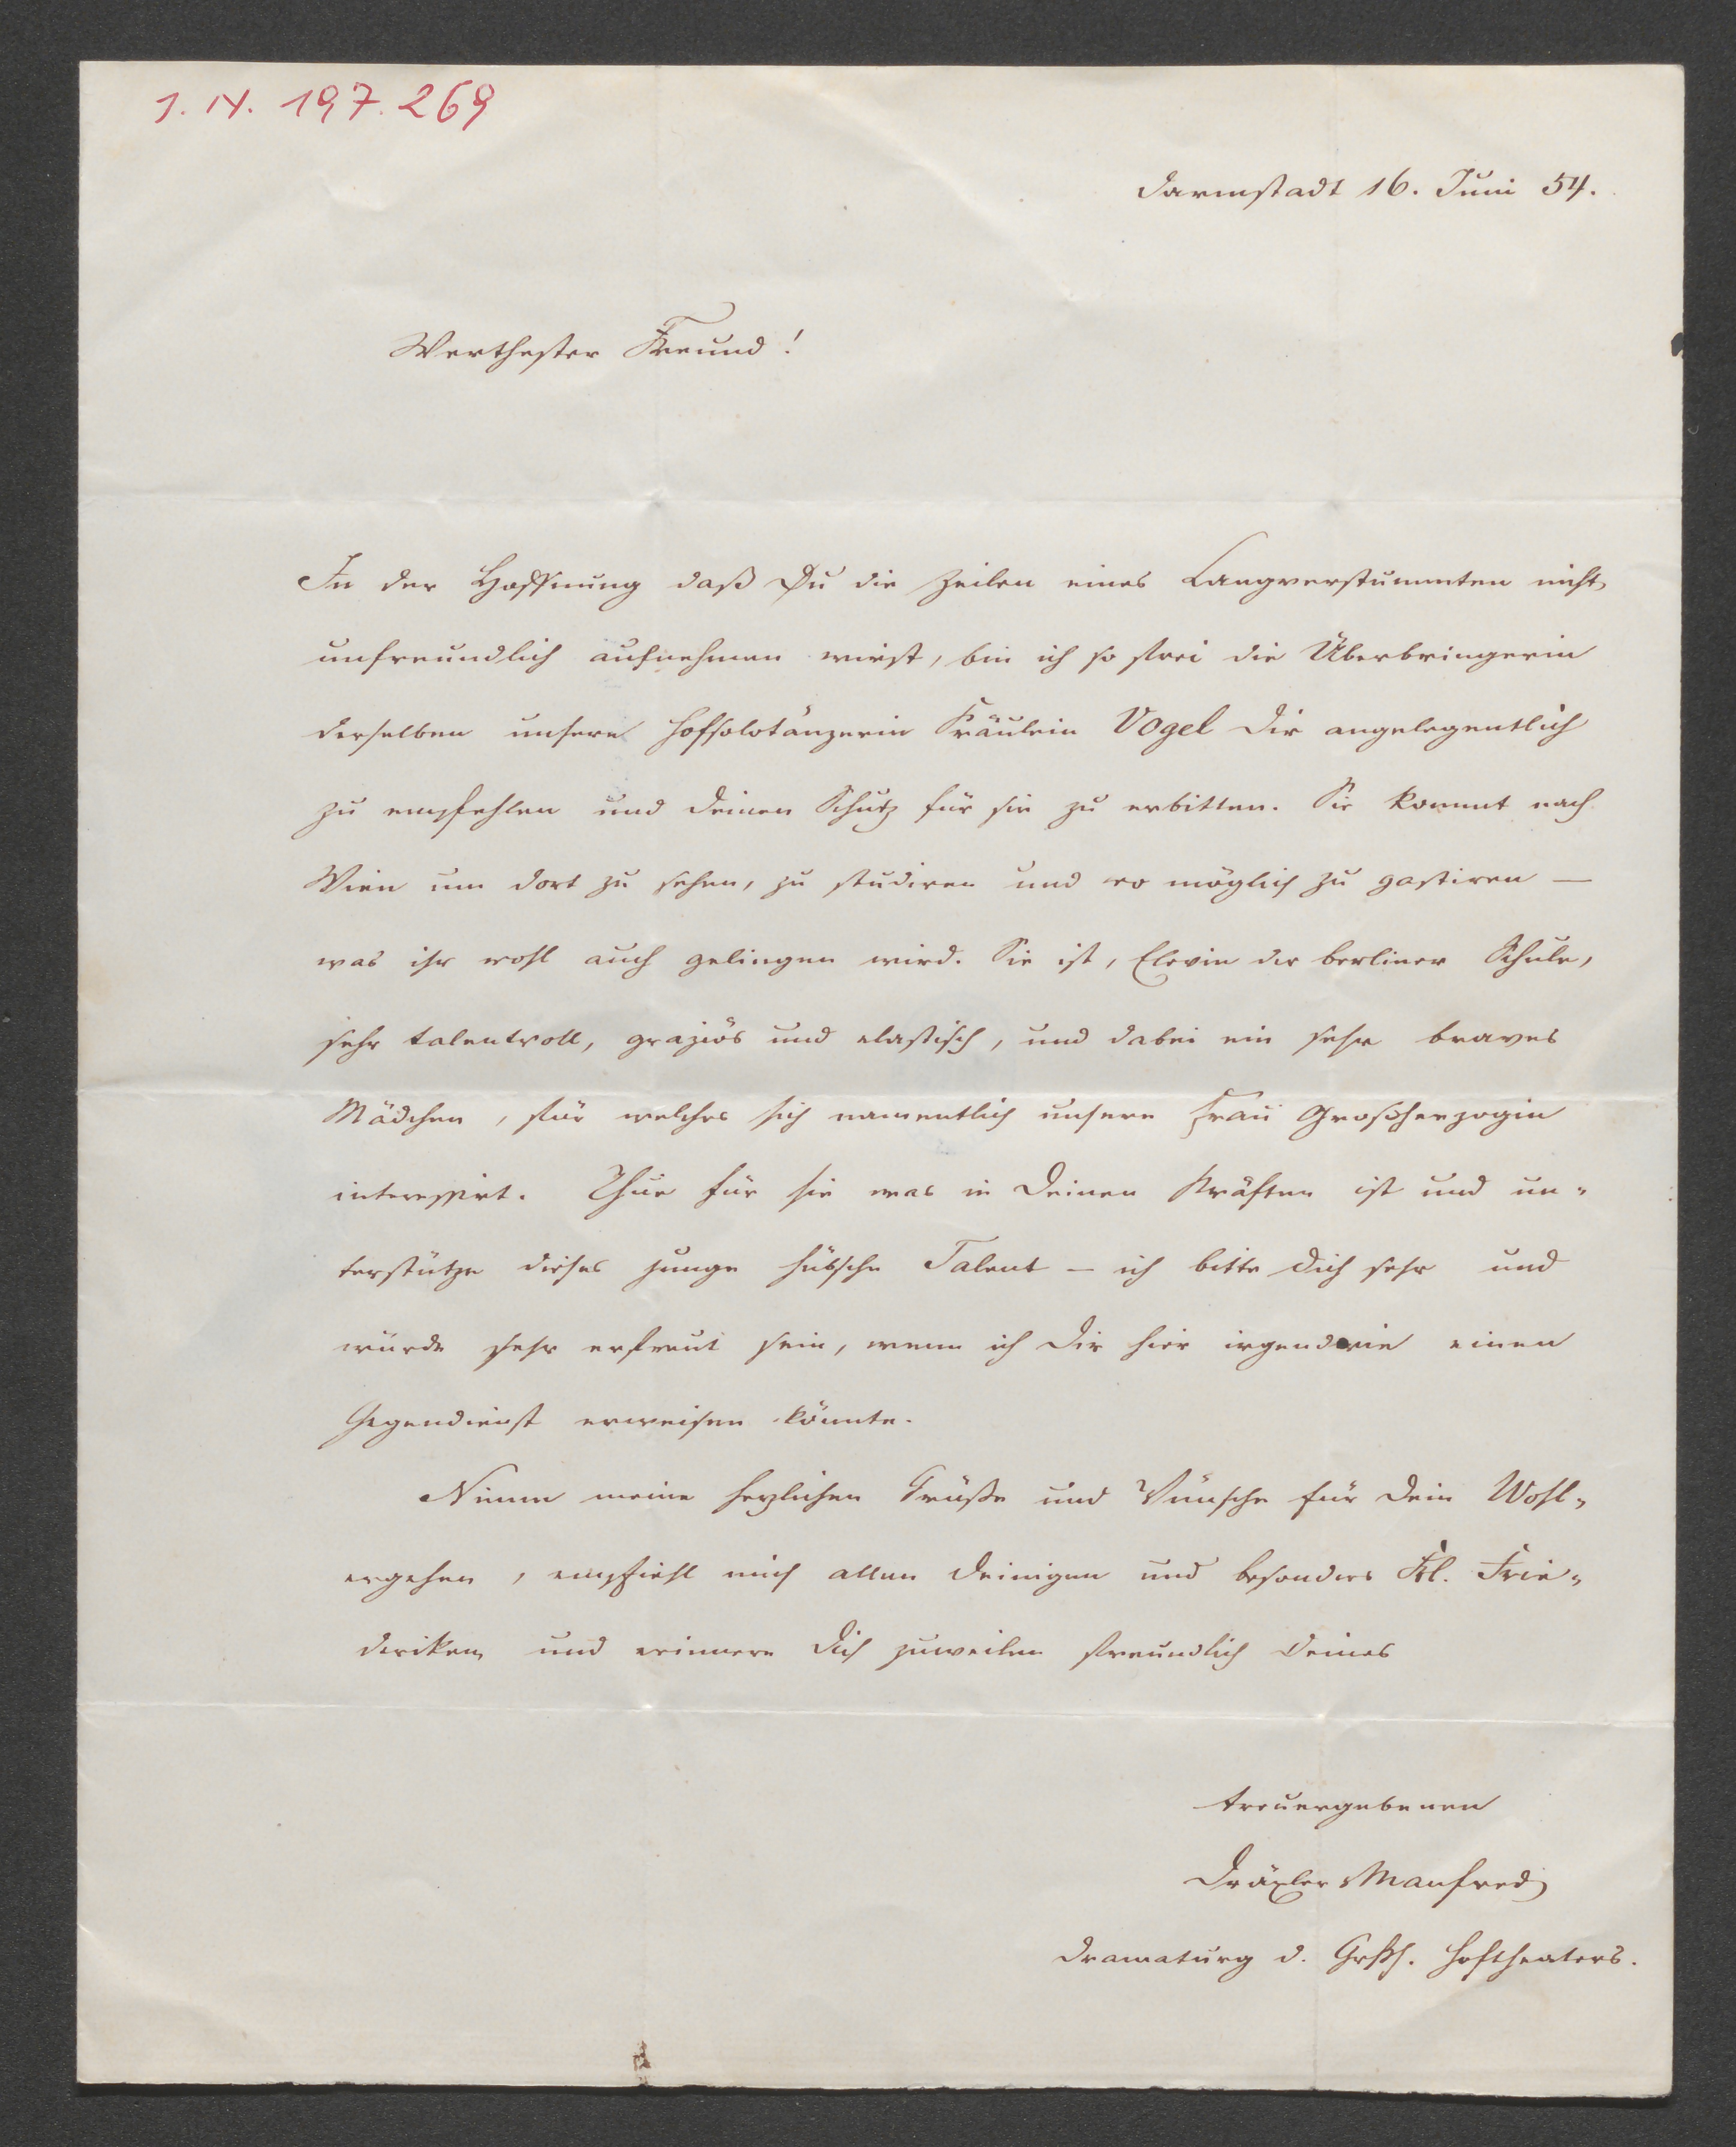 I. N. 197.269
Darmstadt 16. Juni 54.
Werthester Freund!
In der Hoffnung daß Du die Zeilen eines Langverstummten nicht
unfreundlich aufnehmen wirst, bin ich so frei die Überbringerin
derselben unsere Hofsolotänzerin Fräulein Vogel Dir angelegentlich
zu empfehlen und Deinen Schutz für sie zu erbitten. Sie kommt nach
Wien um dort zu sehen, zu studiren und wo möglich zu gastiren —
was ihr wohl auch gelingen wird. Sie ist, Elevin der berliner Schule,
sehr talentvoll, graziös und elastisch, und dabei ein sehr braves
Mädchen, für welches sich namentlich unsere Frau Großherzogin
interessirt. Thue für sie was in Deinen Kräften ist und un-
terstütze dieses junge hübsche Talent – ich bitte Dich sehr und
würde sehr erfreut sein, wenn ich Dir hier irgendwie einen
Gegendienst erweisen könnte.
Nimm meine herzlichen Grüße und Wünsche für Dein Wohl-
ergehen, empfiehl mich allen Deinigen und besonders Frl. Frie-
deriken und erinnere Dich zuweilen freundlich Deines
treuergebenen
Dräxler Manfred
Dramaturg d. Großh. Hoftheaters.